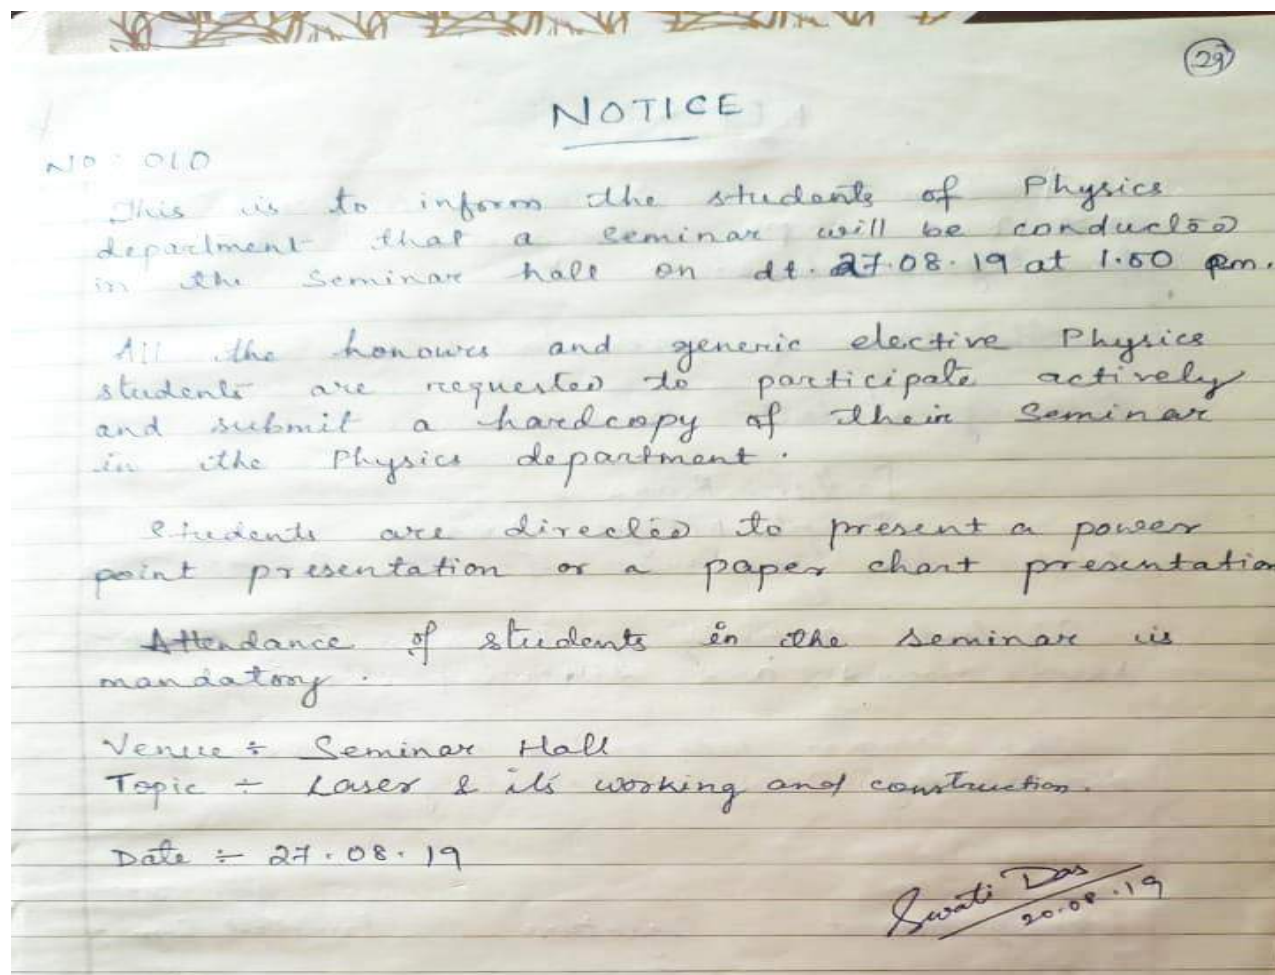 29
NOTICE
No: 010
This is to inform the students of Physics
department that a seminar will be conducted
in the Seminar hall on dt. 27.08.19 at 1.50 pm.
All the honours and generic elective Physics
students are requested to participate actively
and submit a hardcopy of their Seminar
in the Physics department.
Students are directed to present a power
point presentation or a paper chart presentation
Attendance of students in the seminar is
mandatory.
Venue ÷ Seminar Hall
Topic ÷ Laser & its working and construction.
Date ÷ 27.08.19
Swati Das
20.08.19